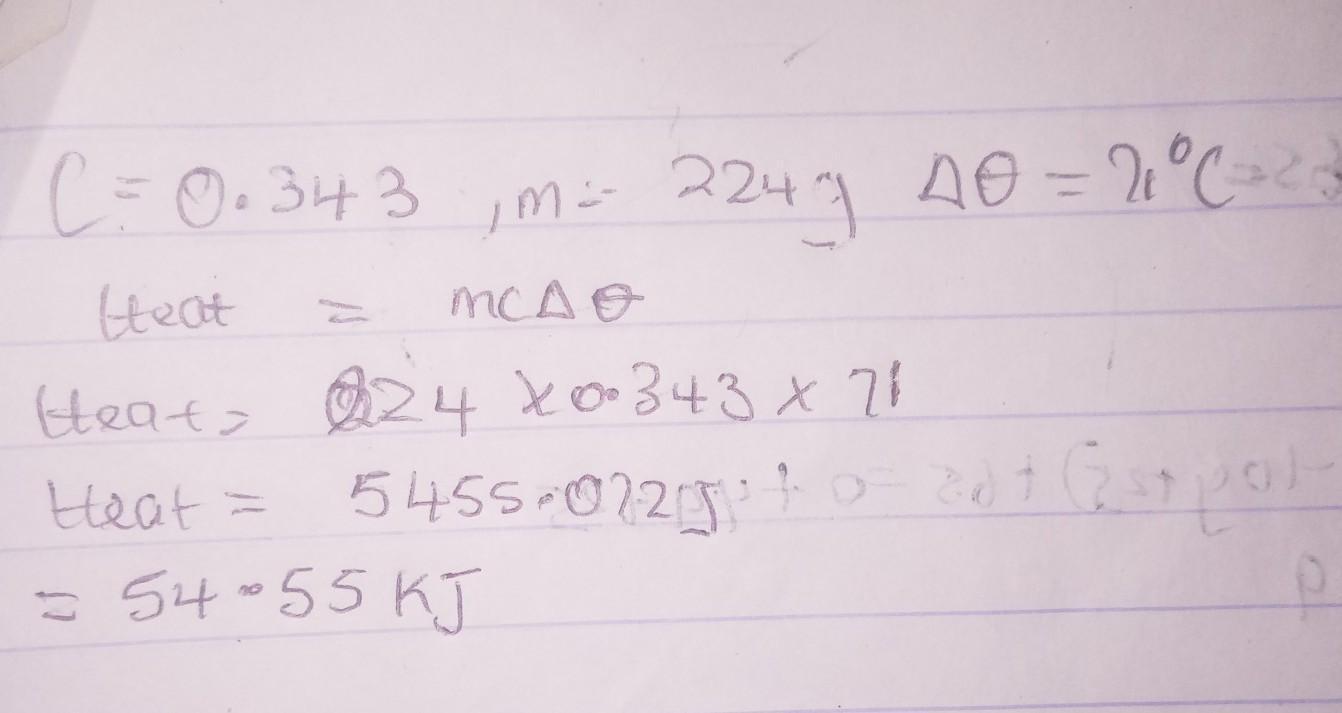 C = 0.343 , m = 224g Δθ = 71°C
Heat = mcΔθ
Heat = 224 x 0.343 x 71
Heat = 5455.072J
= 54.55 KJ